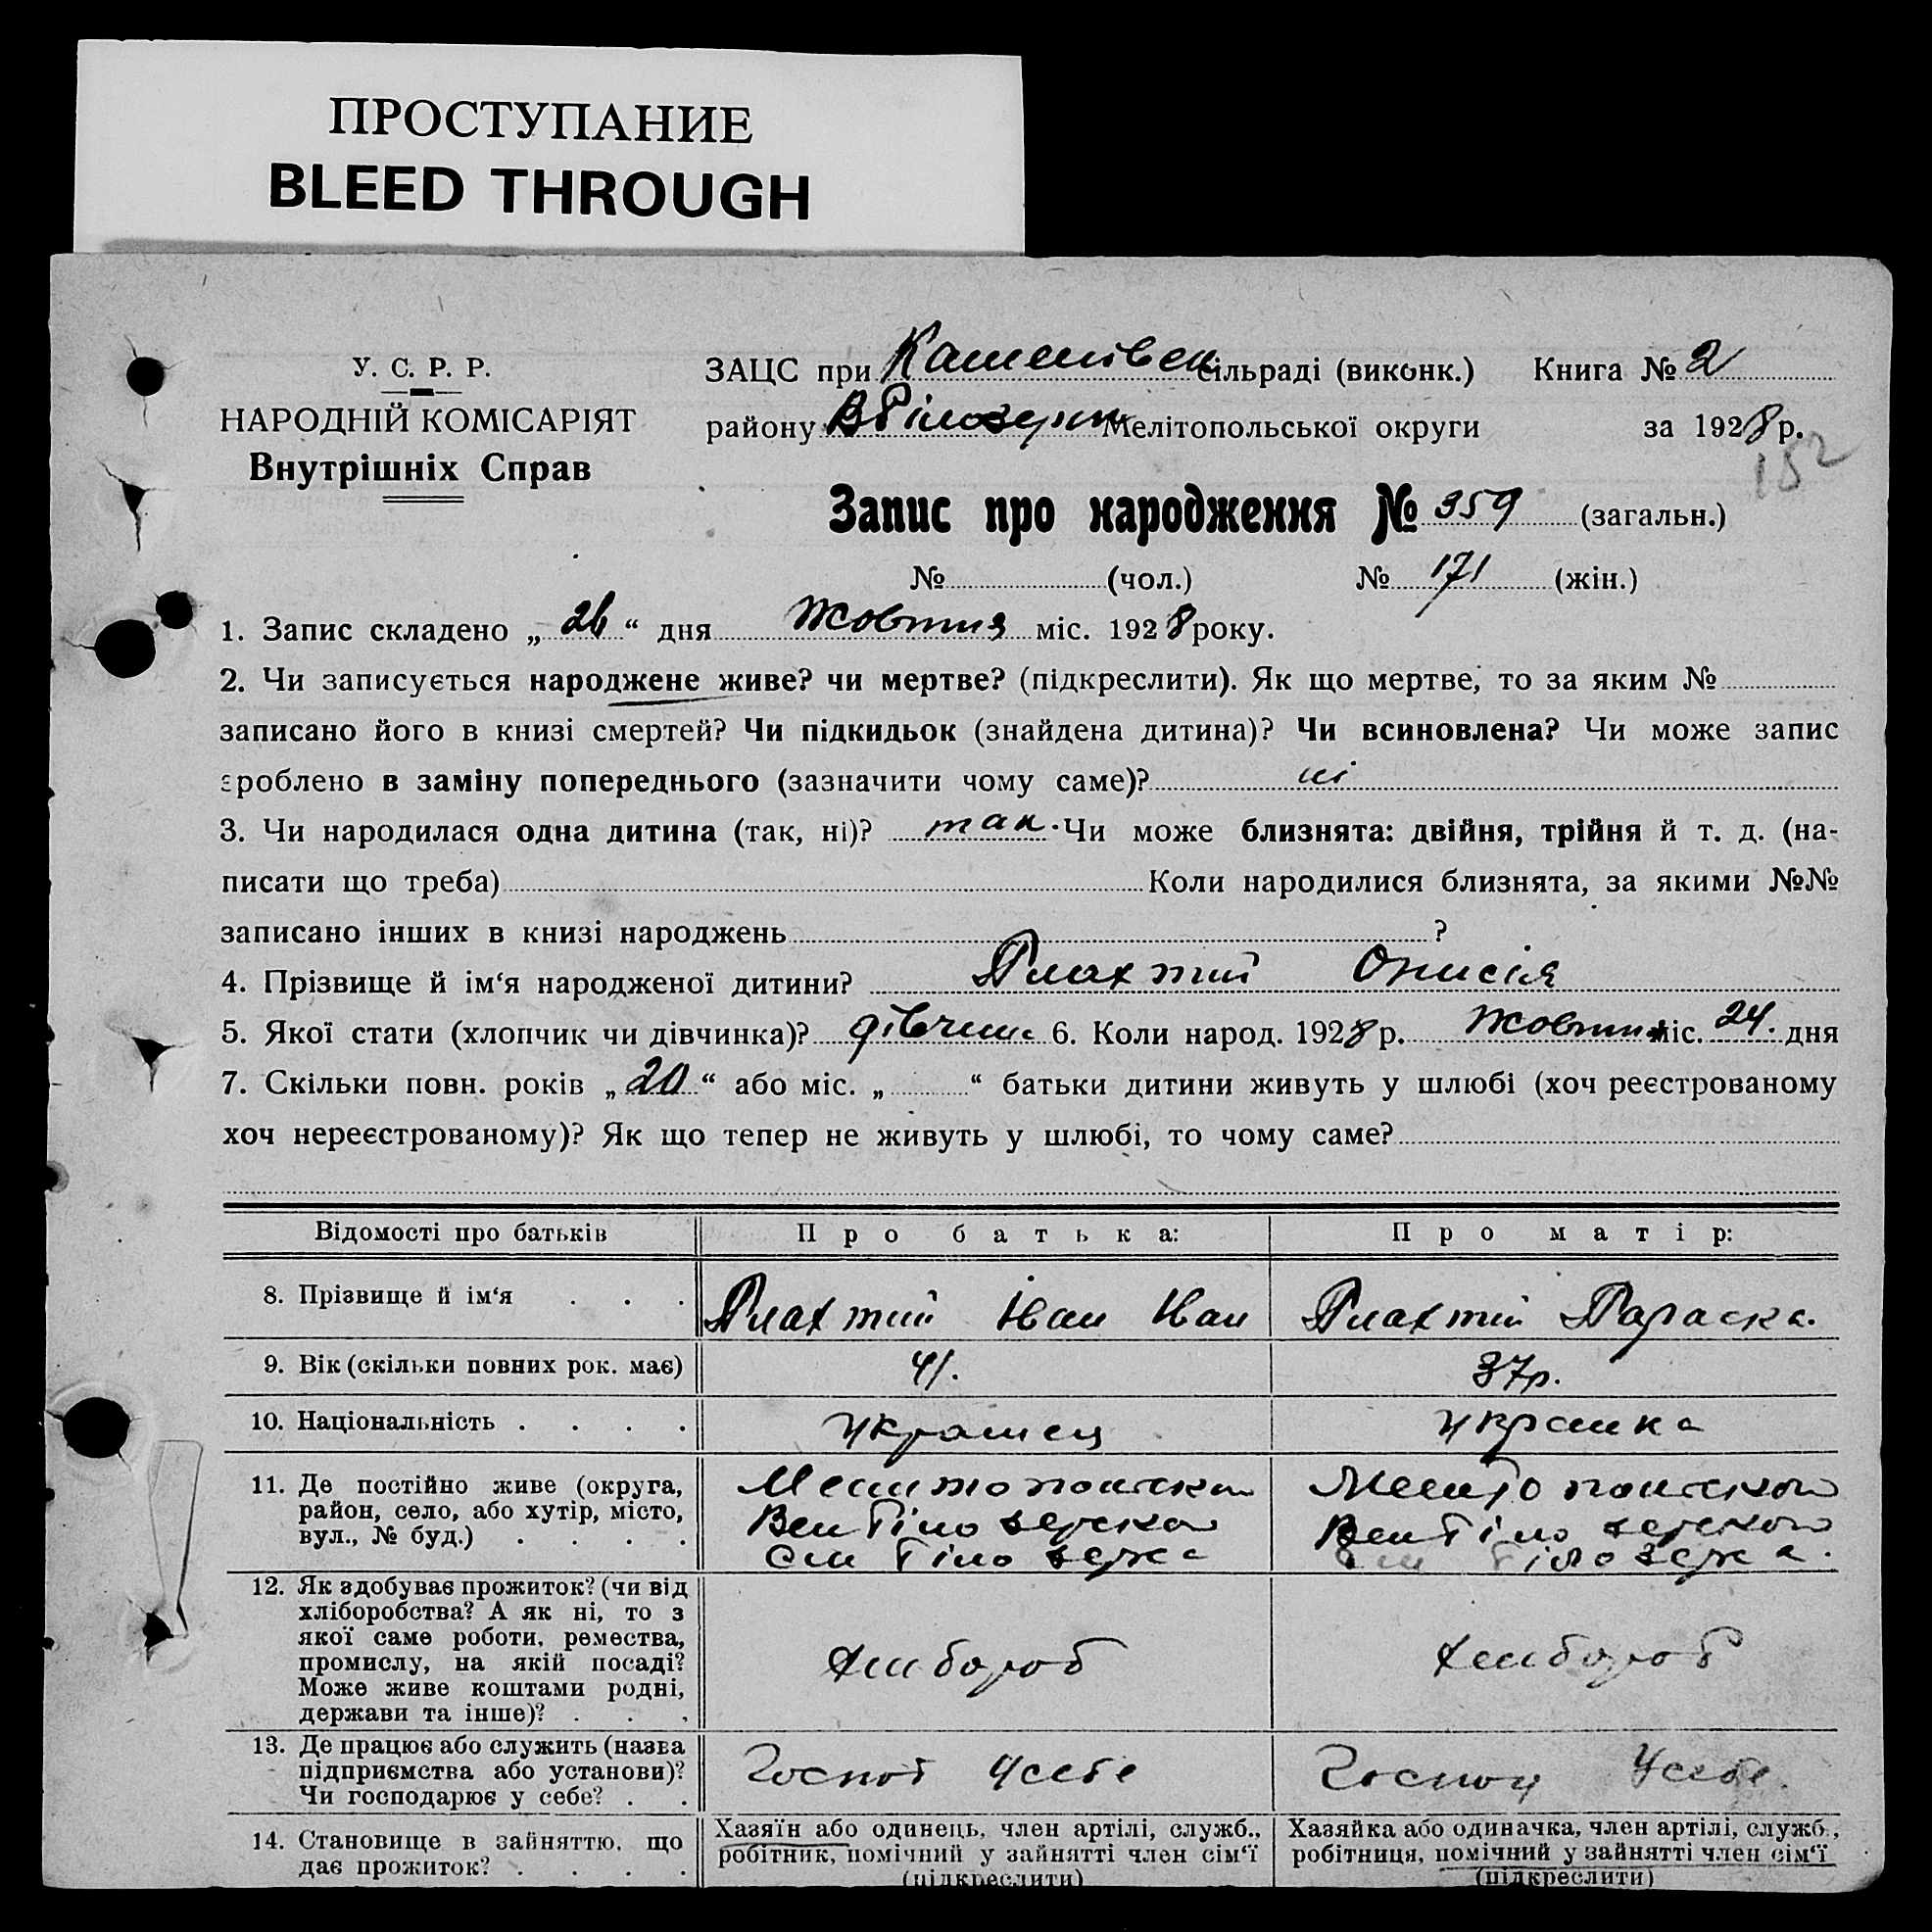 ПРОСТУПАНИЕ
BLEED THROUGH
У. С. Р. Р.
НАРОДНІЙ КОМІСАРІЯТ
Внутрішніх Справ
ЗАЦС при сільраді (виконк.) Книга № 2
району Мелітопольської округи за 1928 р.
152
Запис про народження № 359 (загальн.)
№ (чол.) № 171 (жін.)
1. Запис складено „ 26 “ дня Жовтня міс. 1928 року.
2. Чи записується народжене живе? чи мертве? (підкреслити). Як що мертве, то за яким №
записано його в книзі смертей? Чи підкидьок (знайдена дитина)? Чи всиновлена? Чи може запис
зроблено в заміну попереднього (зазначити чому саме)? ні
3. Чи народилася одна дитина (так, ні)? так. Чи може близнята: двійня, трійня й т. д. (на-
писати що треба) Коли народилися близнята, за якими №№
записано інших в книзі народжень ?
4. Прізвище й ім‘я народженої дитини? Плахтий Онисія
5. Якої стати (хлопчик чи дівчинка)? дівчин 6. Коли народ. 1928 р. Жовтня міс. 24. дня
7. Скільки повн. років „ 20 “ або міс. „ “ батьки дитини живуть у шлюбі (хоч реєстрованому
хоч нереєстрованому)? Як що тепер не живуть у шлюбі, то чому саме?
Відомості про батьків Про батька: Про матір:
8. Прізвище й ім‘я . . . Плахтий Іван Іван Плахтий Параска.
9. Вік (скільки повних рок. має) 41. 37р.
10. Національність . . . . українец українка
11. Де постійно живе (округа,
район, село, або хутір, місто,
вул., № буд.) . . . .
Мелитопольскои
Вел Білозерскои
Вел Білозерскои
Білозерка
Білозерка.
12. Як здобуває прожиток? (чи від
хліборобства? А як ні, то з
якої саме роботи, ремества,
промислу, на якій посаді?
Може живе коштами родні,
держави та інше)? . . .
хлибороб хлибороб
13. Де працює або служить (назва
підприємства або установи)?
Чи господарює у себе? . .
Господ Усебе Усебе.
14. Становище в зайняттю, що
дає прожиток? . . . .
Хазяїн або одинець, член артілі, служб.,
робітник, помічний у зайнятті член сім‘ї
(підкреслити)
Хазяйка або одиначка, член артілі, служб.,
робітниця, помічний у зайнятті член сім‘ї
(підкреслити)